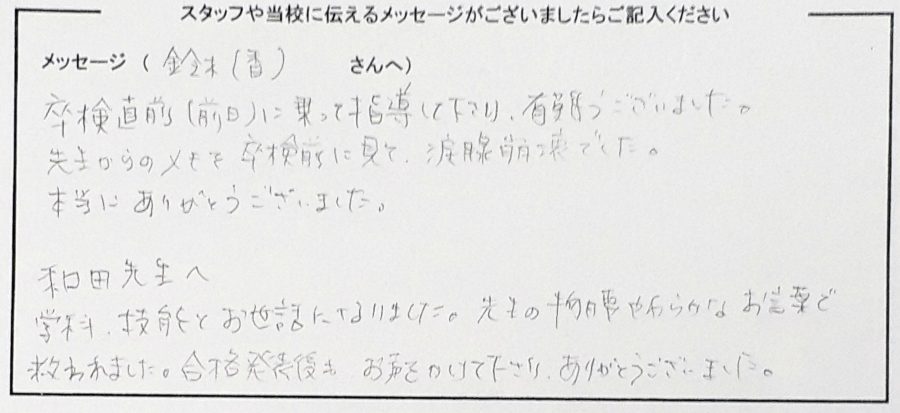 スタッフや当校に伝えるメッセージがございましたらご記入ください
メッセージ ( 鈴木(香) さんへ)
卒検直前(前日)に乗って指導して下さり、有難うございました。
先生からのメモを卒検前に見て、涙腺崩壊でした。
本当にありがとうございました。
和田先生へ
学科、技能とお世話になりました。先生の物腰やわらかなお言葉で
救われました。合格発表後も お声をかけて下さり、ありがとうございました。